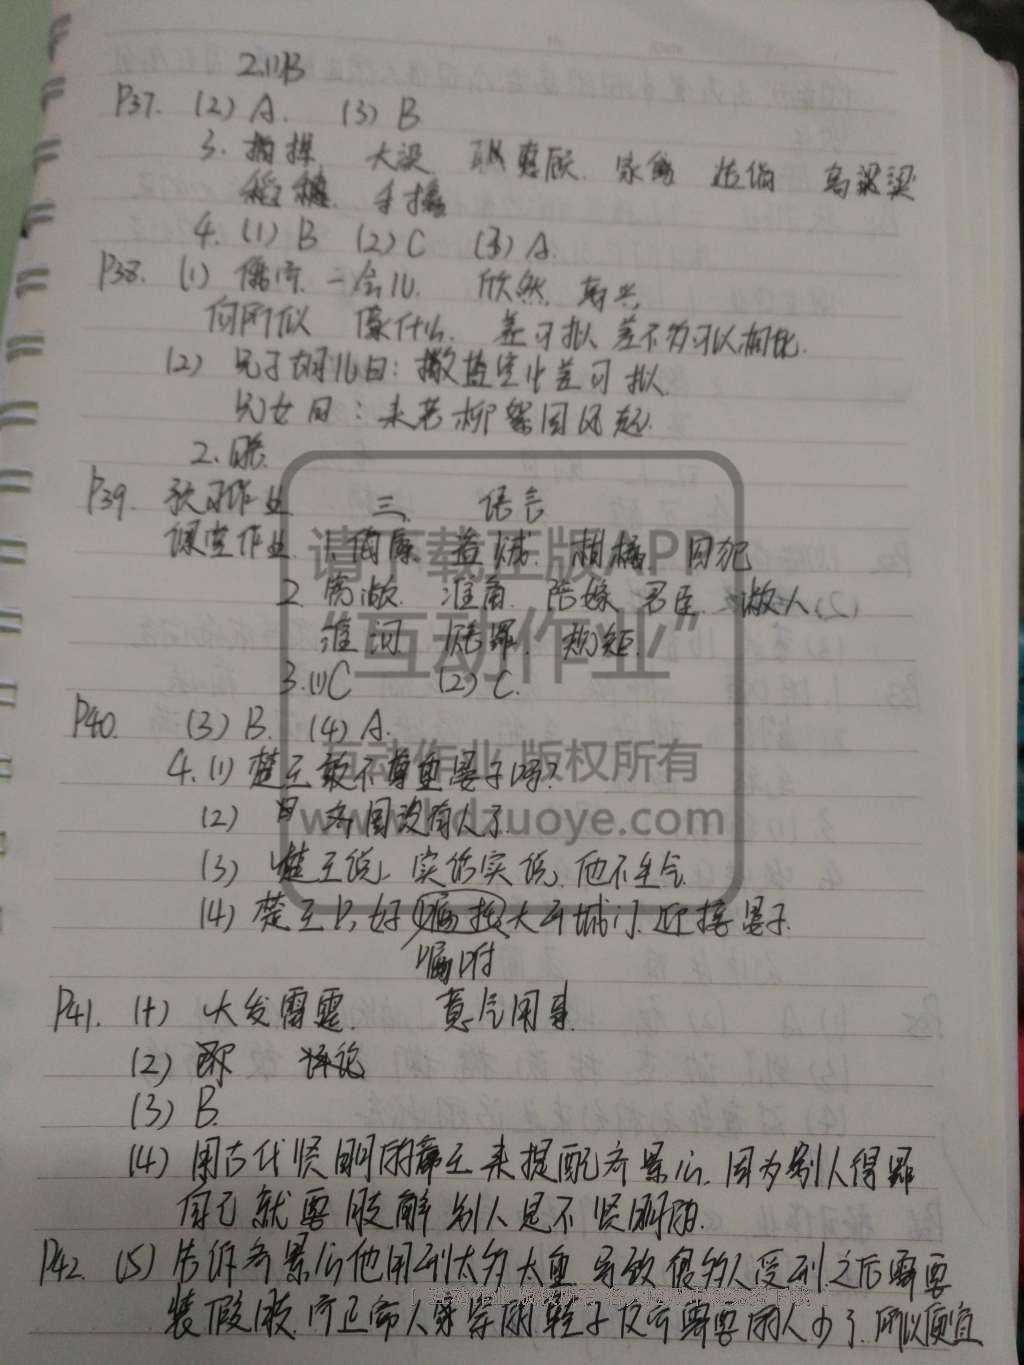 2.(1)B
P37. (2) A. (3) B
3. 大没 家禽 高粱
稻穗
4. (1) B (2) C (3) A.
P38. (1) 儒 一会儿. 欣然 高兴
何所似 像什么. 差可拟 差不多可以相比.
(2) 兄子胡儿曰: 撒盐空中差可拟.
兄女曰: 未若柳絮因风起.
2.
P39. 预习作业 三. 语言
课堂作业 1. 盗贼. 柑橘 囚犯
2. 淮南 陪嫁 君臣 做人
淮河 赔罪. 规矩.
3.(1)C (2) C.
P40. (3) B. (4) A.
4. (1) 楚王敢不尊重晏子吗?
(2) 齐国没有人了.
(3) 楚王说, 实话实说, 他不生气
(4) 楚王只好 大开城门, 迎接晏子.
嘱咐
P41. (1) 大发雷霆. 意气用事.
(2) 评论
(3) B.
(4) 用古代贤明的帝王来提醒齐景公. 因为别人得罪
自己就要肢解别人是不贤明的.
P42. (5) 告诉齐景公他用刑太多太重, 导致很多人受刑之后需要
装假肢, 所以 鞋子反而需要的人少了, 所以便宜
请下载正版APP
“互动作业”
互动作业 版权所有
www.hdzuoye.com